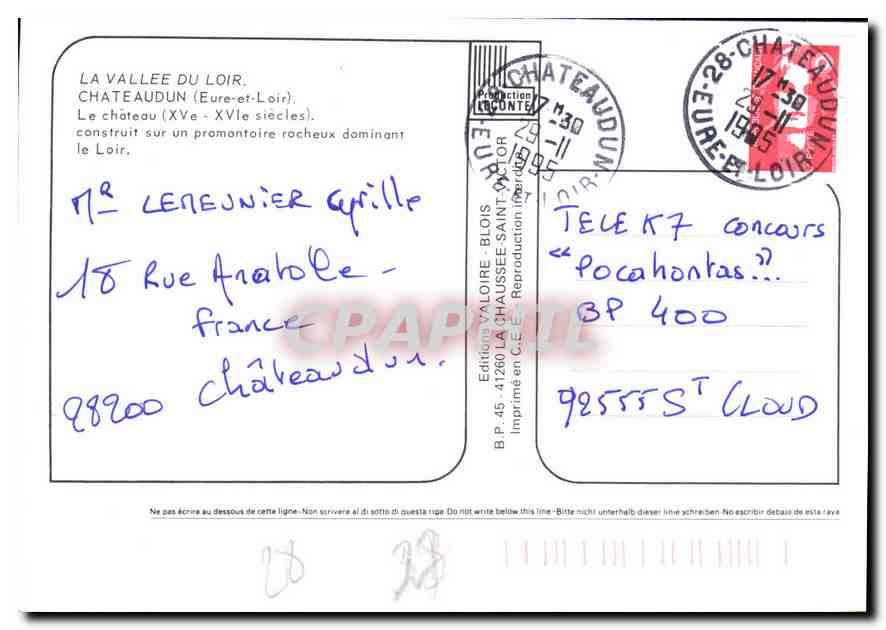 LA VALLEE DU LOIR.
CHATEAUDUN (Eure-et-Loir).
Le château (XVe - XVIe siècles).
construit sur un promontoire rocheux dominant
le Loir.
Mr LEMEUNIER Cyrille
18 Rue Anatole -
france
28200 Châteaudun.
Production
LECONTE
28-CHATEAUDUN
17 H 30
29-11
1995
EURE-ET-LOIR-
Editions VALOIRE - BLOIS
B.P. 45 - 41260 LA CHAUSSEE-SAINT-VICTOR
Imprimé en C.E.E. Reproduction interdite
28-CHATEAUDUN
17 H 30
29-11
1995
EURE-ET-LOIR-
TELE K7 concours
"Pocahontas"...
BP 400
92555 ST CLOUD
CPAPHIL
Ne pas écrire au dessous de cette ligne-Non scrivere al di sotto di questa riga-Do not write below this line-Bitte nicht unterhalb dieser linie schreiben-No escribir debajo de esta raya
28
28